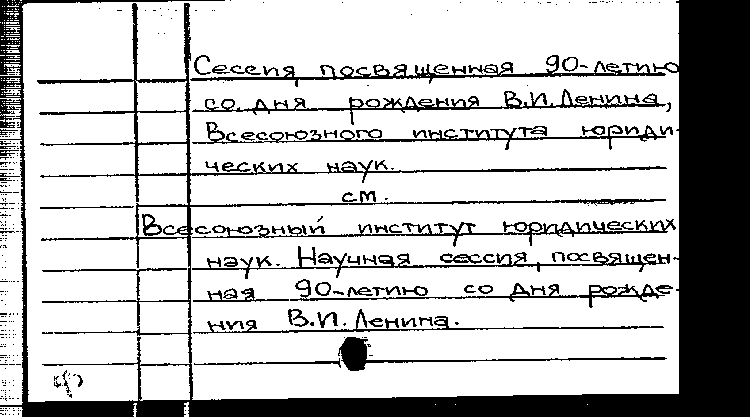 Сессия, посвященная 90-летию
со дня рождения В.И.Ленина,
Всесоюзного института юриди-
ческих наук.
см.
Всесоюзный институт юридических
наук. Научная сессия, посвящен-
ная 90-летию со дня рожде-
ния В.И.Ленина.